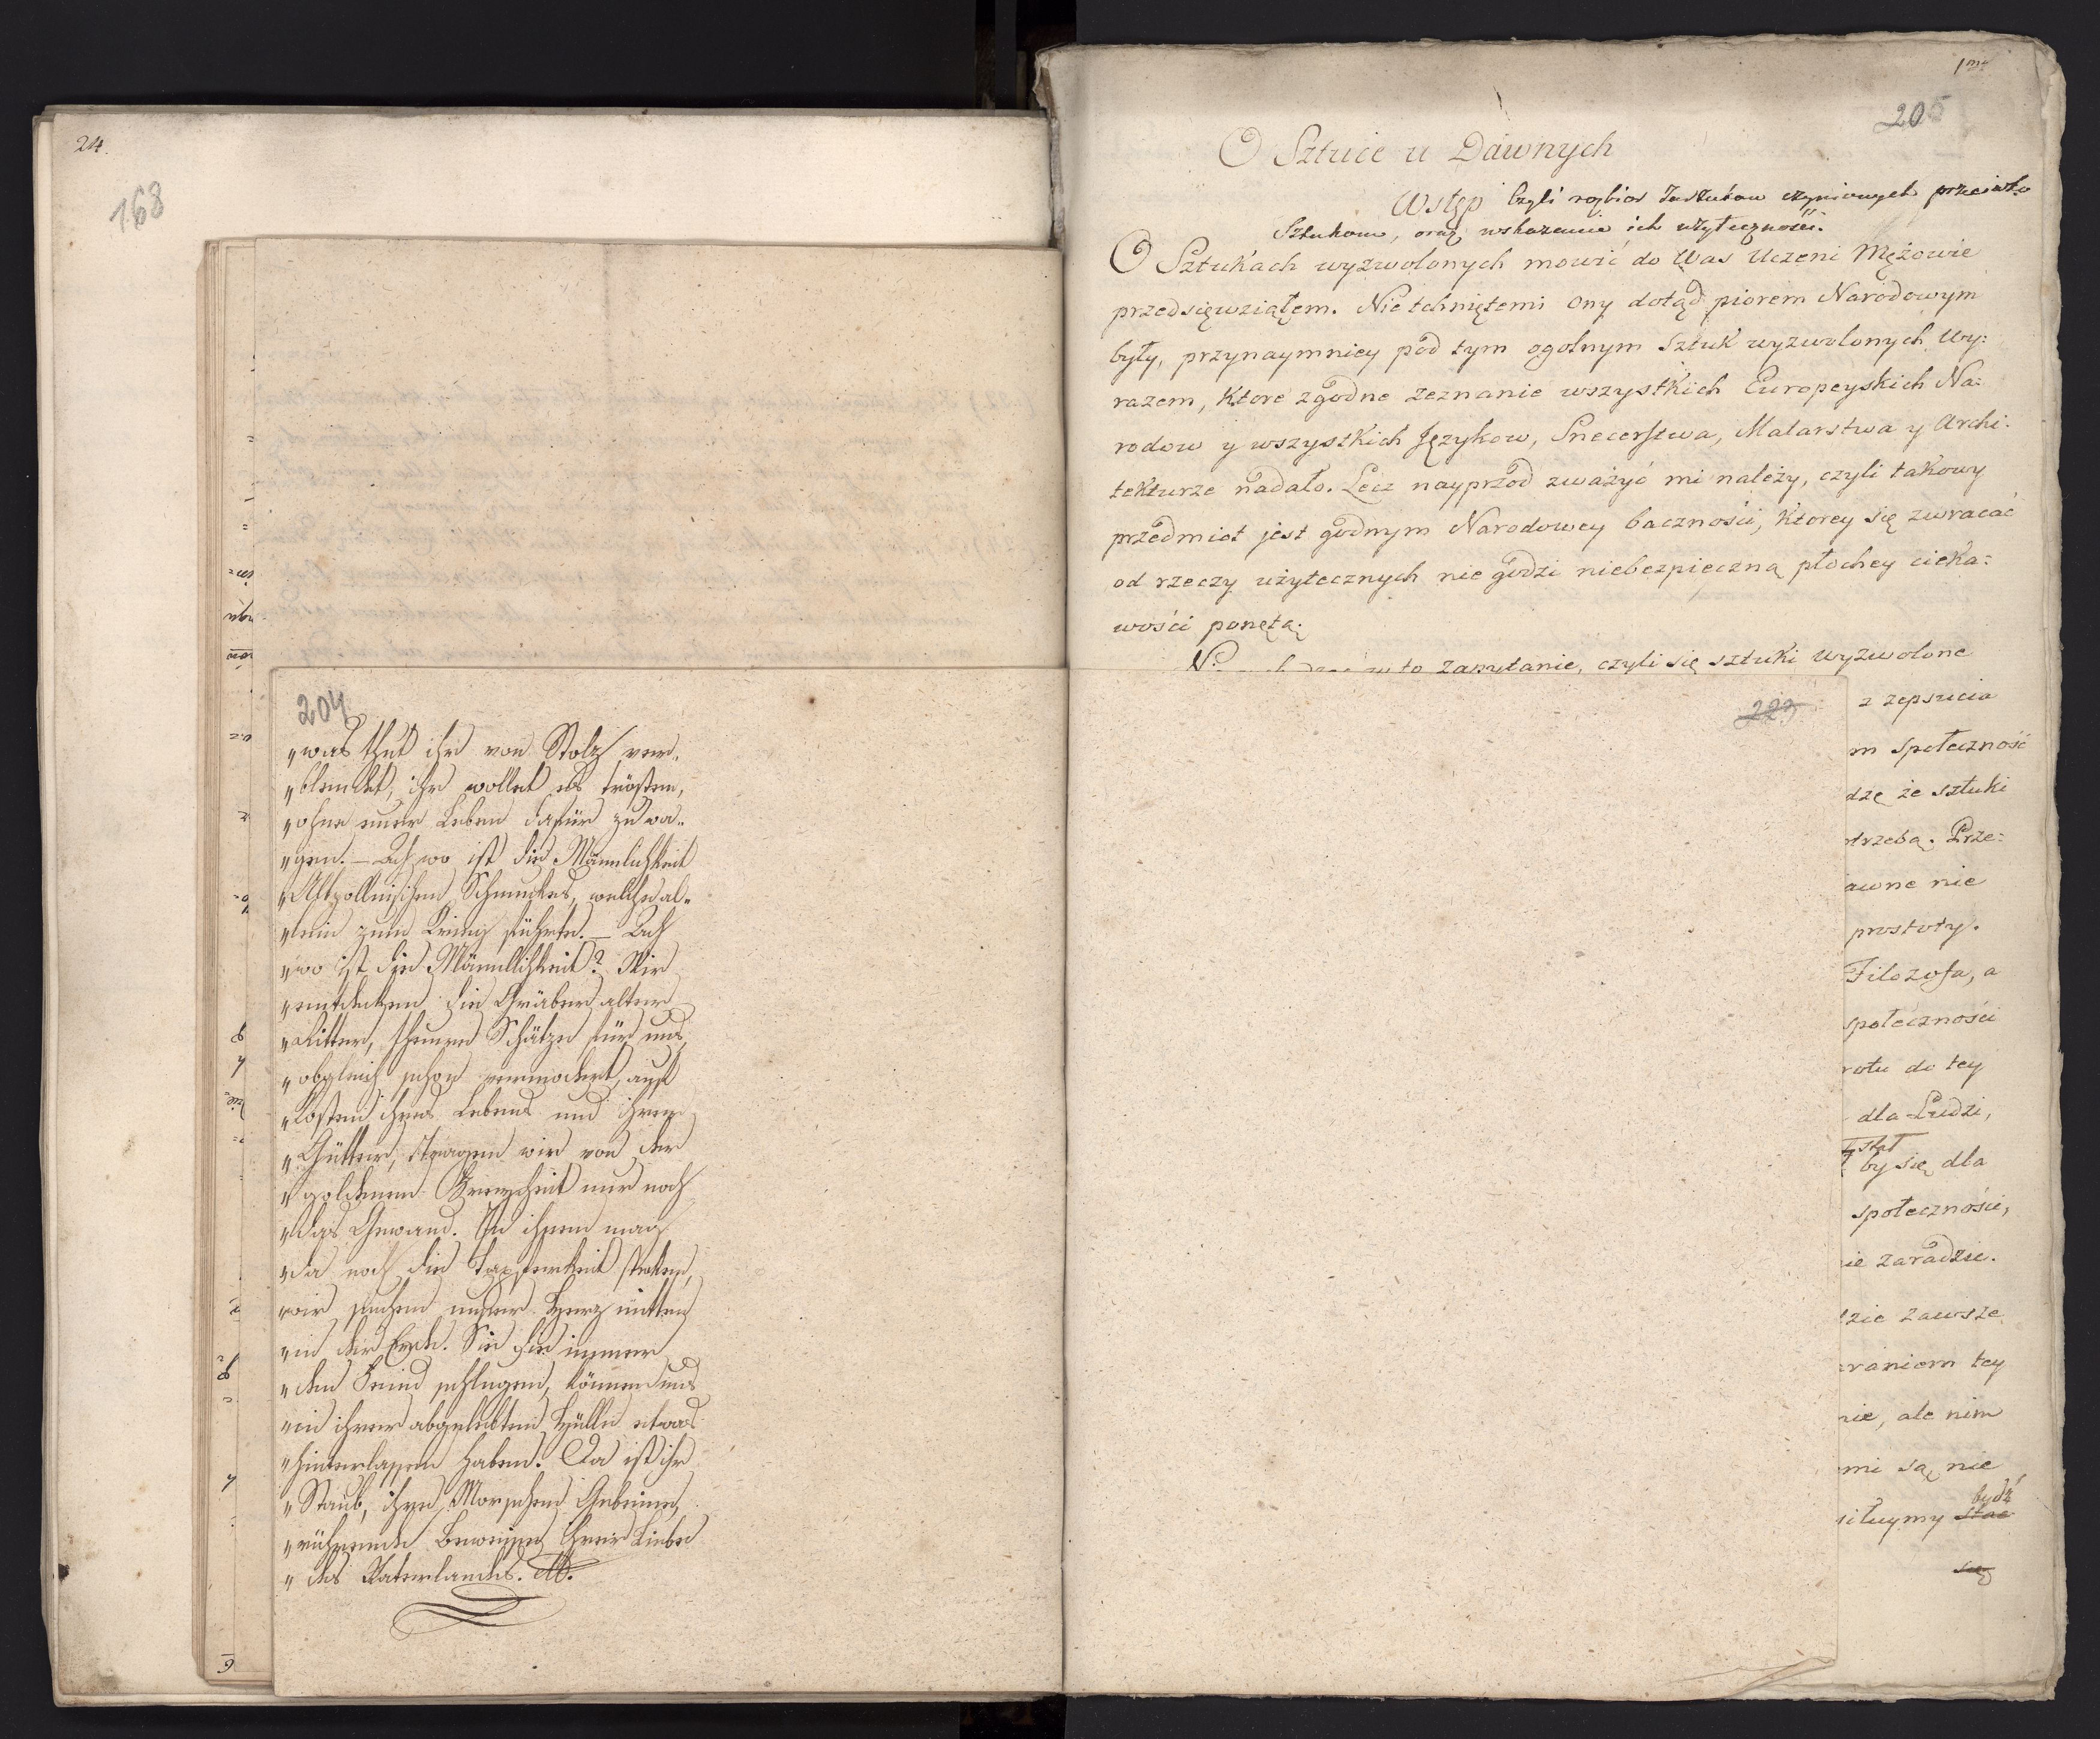 24.
168
204
"was thut ihr von Stolz ver„
"blendet, ihr wollet es trösten,
"ohne euer Leben dafür zu wa„
"gen. – Ach wo ist die Männlichkeit
"Altpollnischen Schmuckes, welche al„
"lein zum Krieg führte. – Ach
"wo ist die Männlichkeit? Wir
"entdecken die Gräber alter
"Ritter, theuere Schätze für uns,
"obgleich schon vermodert, auf
"Kosten ihres Lebens und ihrer
"Gütter, tragen wir von der
"goldenen Freyheit nur noch
"das Gewand. In ihnen mag
"da noch die Tapferkeit stecken,
"wir suchen unser Herz mitten
"in der Erde. Sie die immer
"den Feind schlugen, können uns
"in ihrer abgelebten Hülle etwas
"hinterlassen haben. Da ist ihr
"Staub, ihre Morschen Gebeine,
"rührende Beweisse ihrer Liebe
"des Vaterlandes.
1my
205
O Sztuce u Dawnych
Wstęp Czyli rozbior Zarzutow czynionych przeciwko
Sztukom, oraz wskazanie ich użyteczności.
O Sztukach wyzwolonych mowić do Was Uczeni Mężowie
przedsięwziąłem. Nie tchniętemi ony dotąd piorem Narodowym
były, przynaymniey pod tym ogolnym Sztuk wyzwolonych wy:
razem, Ktore zgodne zeznanie wszystkich Europeyskich Na:
rodow y wszystkich Językow, Snecerstwa, Malarstwa y Archi:
tekturze nadało. Lecz nayprzod zważyć mi należy, czyli takowy
przedmiot jest godnym Narodowey baczności, Ktorey się zwracać
od rzeczy użytecznych nie godzi niebezpieczną płochey cieka:
wości ponętą.
to zapytanie, czyli się sztuki wyzwolone
223
z zepsucia
m społeczność
dzę że sztuki
trzebą. Prze:
awne nie
prostoty.
Filozofa, a
społeczności
rotu do tey
dla Ludzi,
stał
by się dla
społeczności,
ie zaradzie.
zie zawsze
raniom tey
nie, ale nim
mi są nie
bydź
siłuymy stać
się